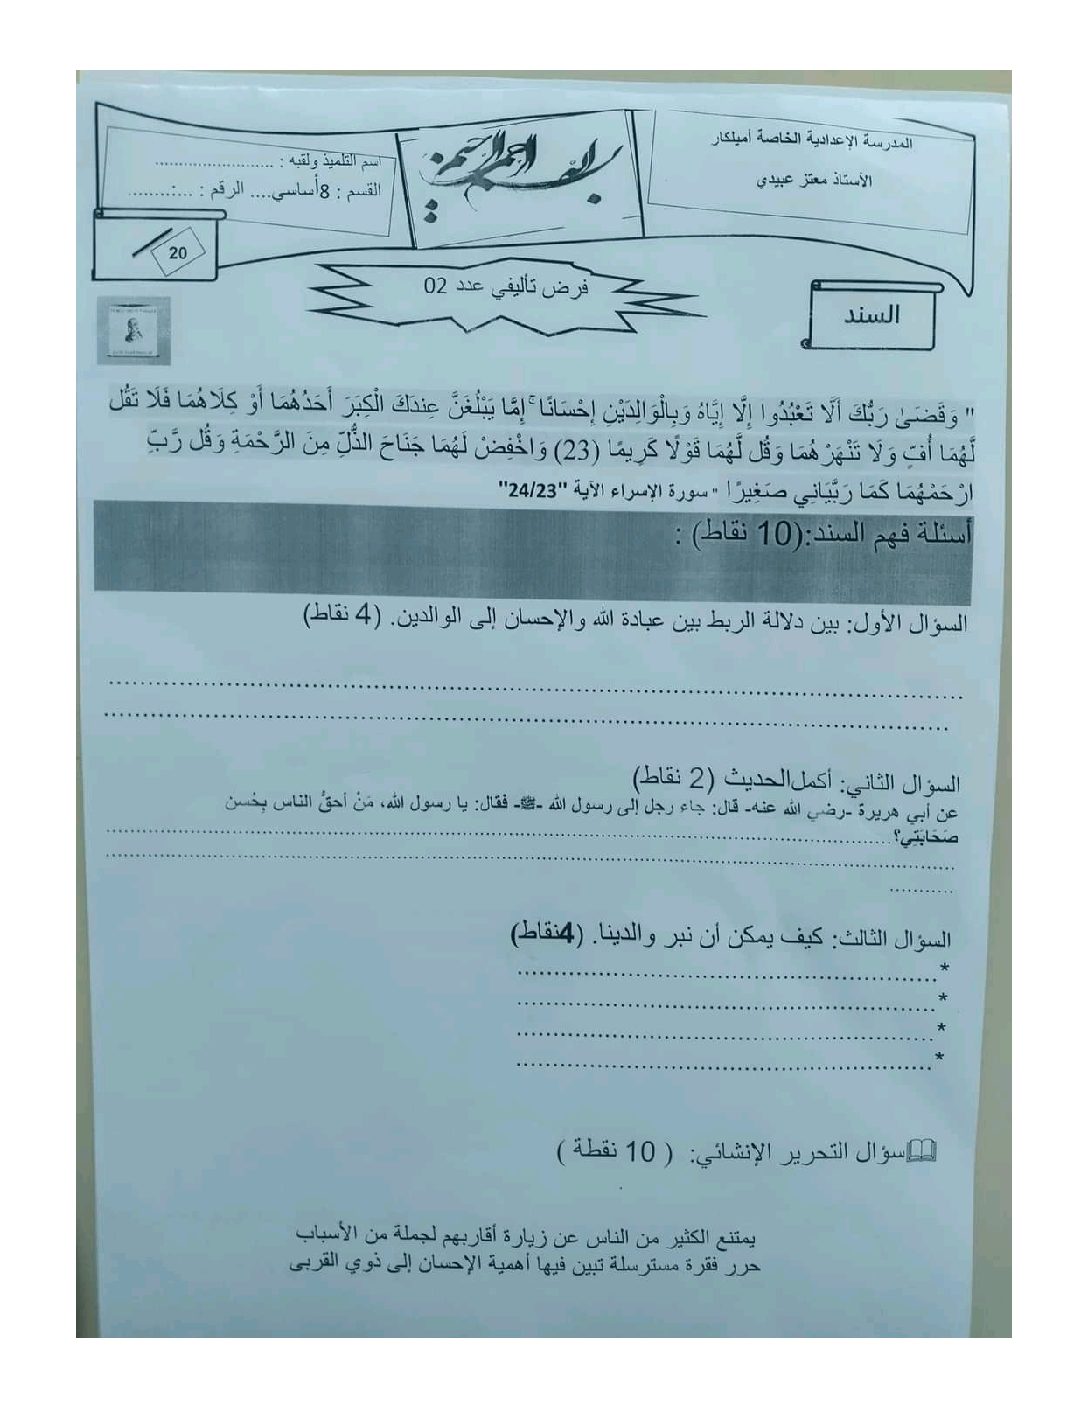 المدرسة الإعدادية الخاصة أميلكار
الأستاذ معتز عبيدي
بسم الله الرحمن الرحيم
اسم التلميذ ولقبه : ........................
القسم : 8أساسي.... الرقم : ...:........
20
فرض تأليفي عدد 02
السند
" وَقَضَىٰ رَبُّكَ أَلَّا تَعْبُدُوا إِلَّا إِيَّاهُ وَبِالْوَالِدَيْنِ إِحْسَانًا ۚ إِمَّا يَبْلُغَنَّ عِندَكَ الْكِبَرَ أَحَدُهُمَا أَوْ كِلَاهُمَا فَلَا تَقُل
لَّهُمَا أُفٍّ وَلَا تَنْهَرْهُمَا وَقُل لَّهُمَا قَوْلًا كَرِيمًا (23) وَاخْفِضْ لَهُمَا جَنَاحَ الذُّلِّ مِنَ الرَّحْمَةِ وَقُل رَّبِّ
ارْحَمْهُمَا كَمَا رَبَّيَانِي صَغِيرًا " سورة الإسراء الآية "24/23"
أسئلة فهم السند:(10 نقاط) :
السؤال الأول: بين دلالة الربط بين عبادة الله والإحسان إلى الوالدين. (4 نقاط)
السؤال الثاني: أكمل الحديث (2 نقاط)
عن أبي هريرة -رضي الله عنه- قال: جاء رجل إلى رسول الله -ﷺ- فقال: يا رسول الله، مَنْ أحقُّ الناس بِحُسن
صَحَابَتِي؟
السؤال الثالث: كيف يمكن أن نبر والدينا. (4نقاط)
*
*
*
*
سؤال التحرير الإنشائي: ( 10 نقطة )
يمتنع الكثير من الناس عن زيارة أقاربهم لجملة من الأسباب
حرر فقرة مسترسلة تبين فيها أهمية الإحسان إلى ذوي القربى